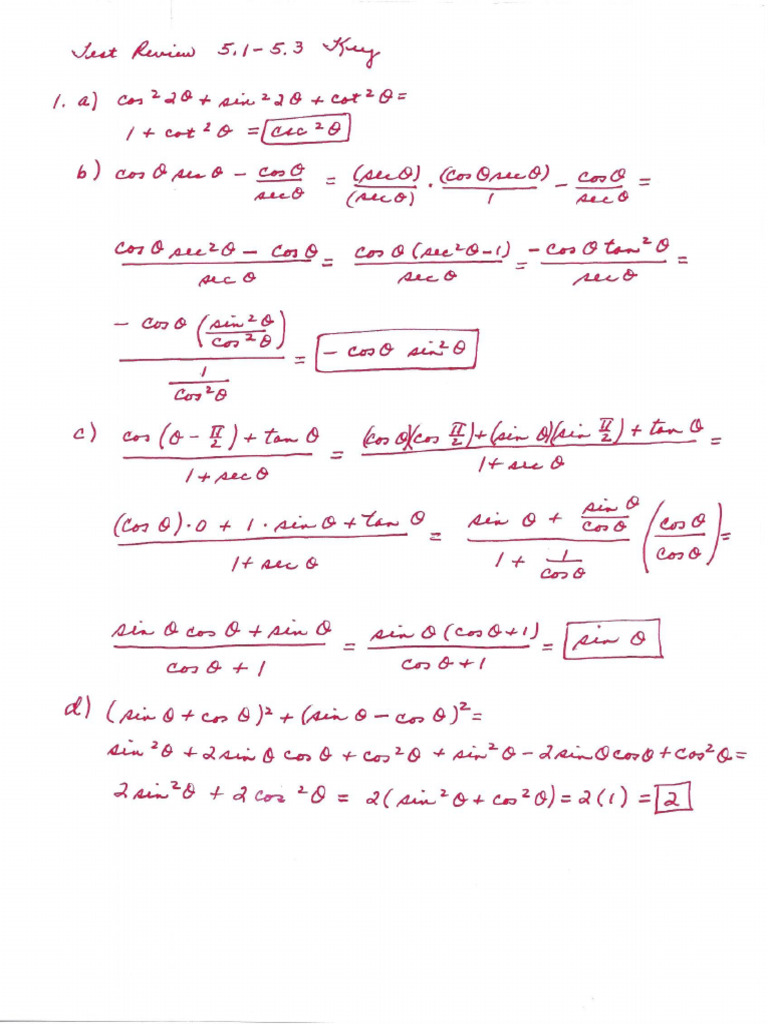 Test Review 5.1-5.3 Key
1. a) cos²2θ + sin²2θ + cot²θ =
1 + cot²θ = csc²θ
b) cosθ secθ - cosθ/secθ = (secθ)/(secθ) · (cosθ secθ)/1 - cosθ/secθ =
(cosθ sec²θ - cosθ)/secθ = cosθ(sec²θ-1)/secθ = -cosθ tan²θ/secθ =
-cosθ(sin²θ/cos²θ)/(1/cos²θ) = -cosθ sin²θ
c) (cos(θ - π/2) + tanθ)/(1 + secθ) = ((cosθ)(cos π/2) + (sinθ)(sin π/2) + tanθ)/(1 + secθ) =
((cosθ)·0 + 1·sinθ + tanθ)/(1 + secθ) = (sinθ + sinθ/cosθ)/(1 + 1/cosθ) (cosθ/cosθ) =
(sinθ cosθ + sinθ)/(cosθ + 1) = sinθ(cosθ+1)/(cosθ+1) = sinθ
d) (sinθ + cosθ)² + (sinθ - cosθ)² =
sin²θ + 2sinθcosθ + cos²θ + sin²θ - 2sinθcosθ + cos²θ =
2sin²θ + 2cos²θ = 2(sin²θ + cos²θ) = 2(1) = 2